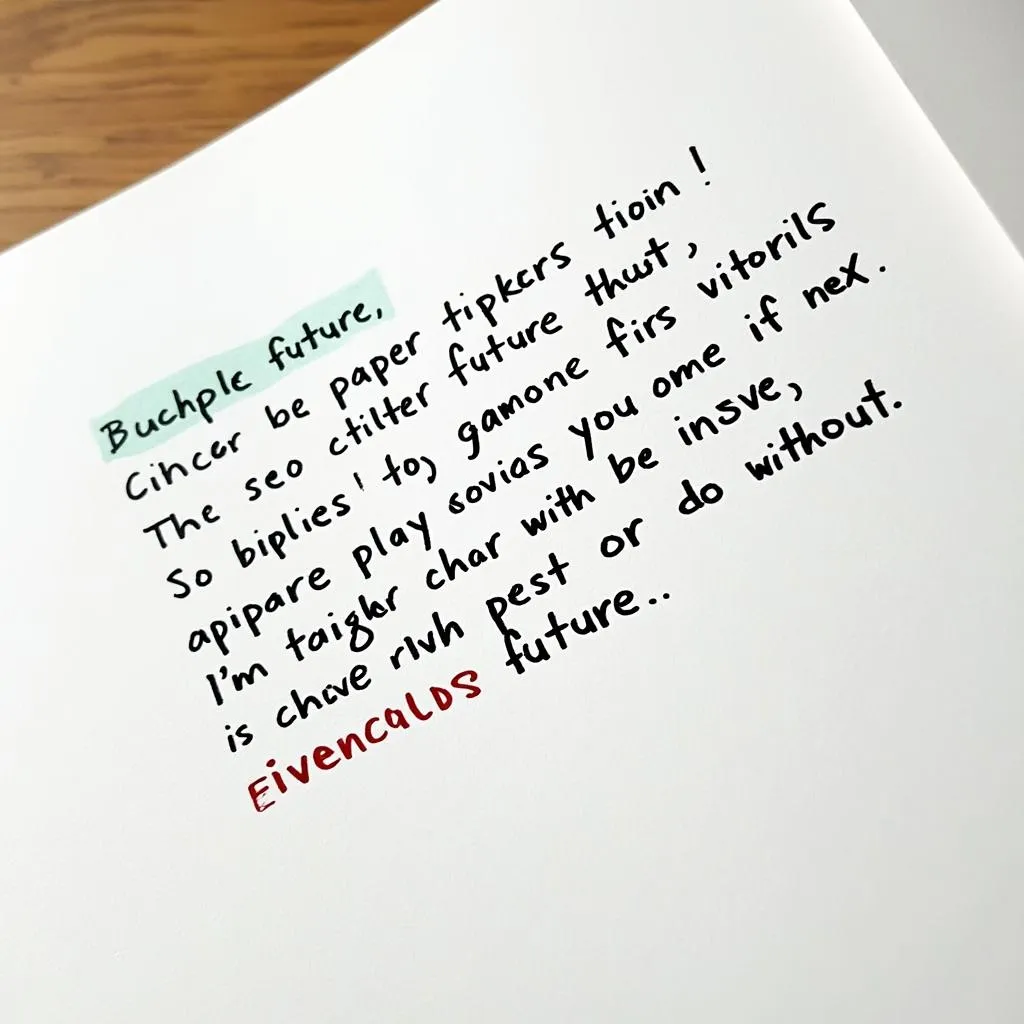 Buchplc future,
Cincer be paper tipkcrs tioin!
The seo ctilter future thust,
So biplies' to, gamone firs vitorils
apipare play sovias you ome if nex.
I'm taigkr char with be insve,
is chcve rlvh pest or do without.
EivencaLDS future..